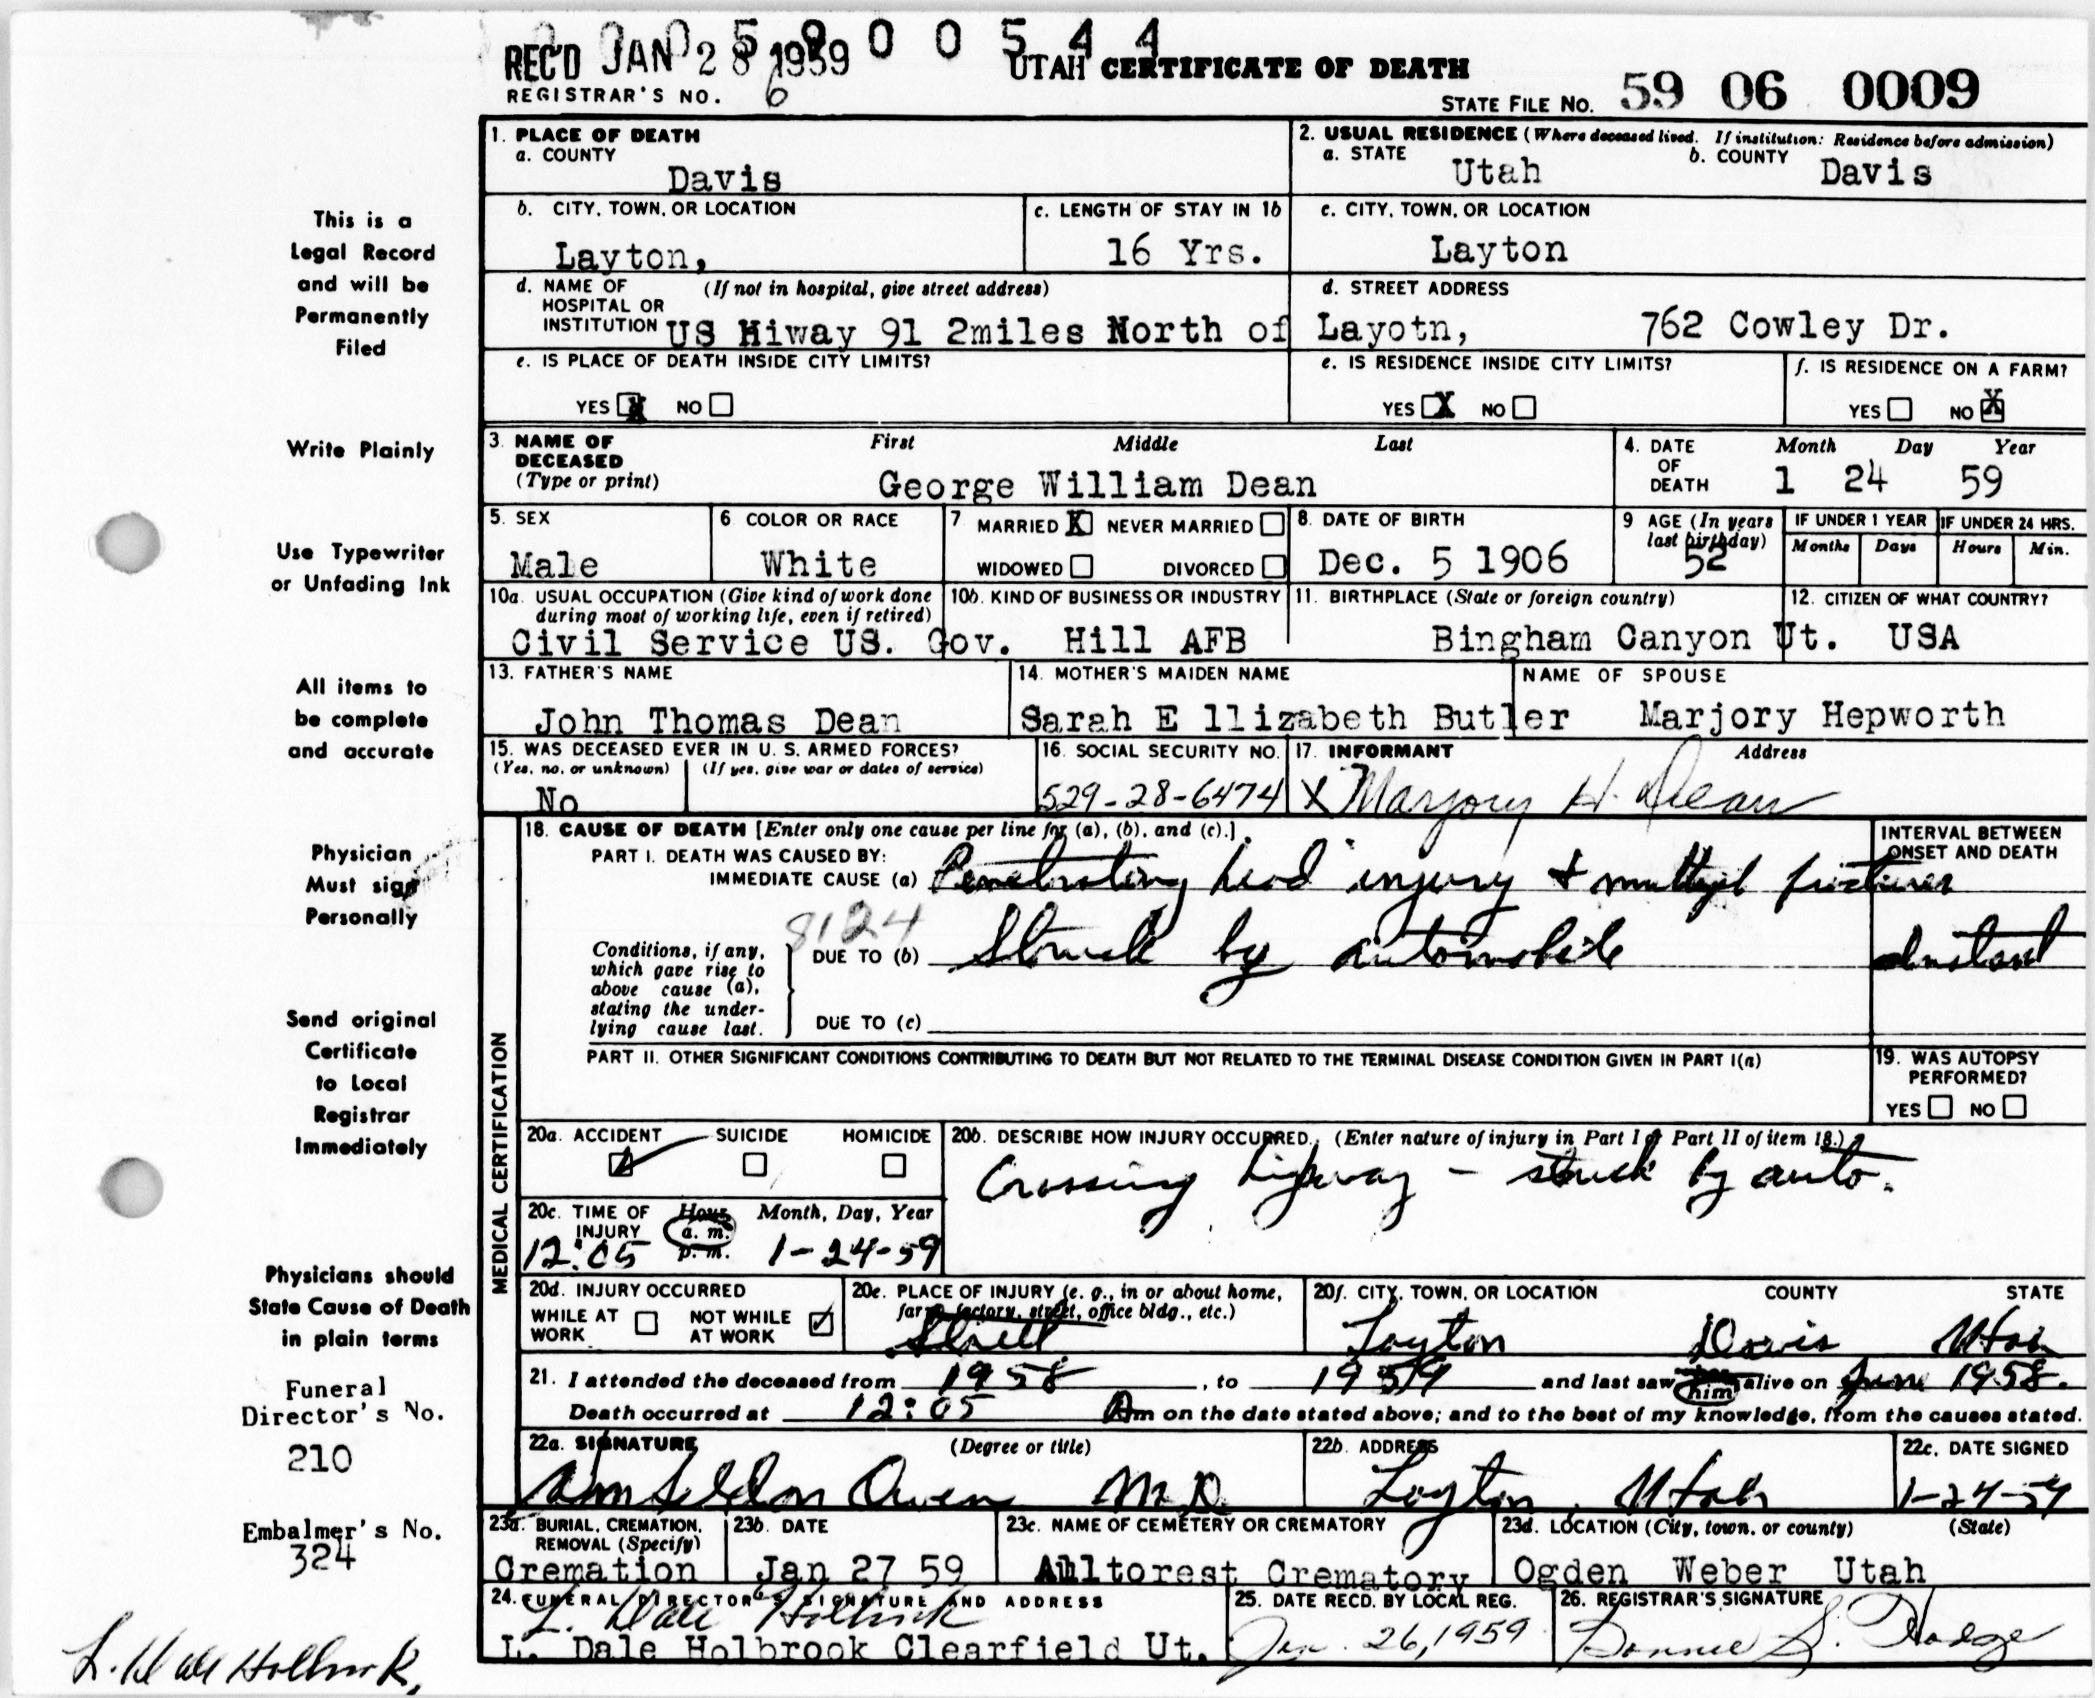 0 0 0 5 9 0 0 5 4 4
REC'D JAN 28 1959
UTAH CERTIFICATE OF DEATH
REGISTRAR'S NO. 6
STATE FILE NO. 59 06 0009
This is a
Legal Record
and will be
Permanently
Filed
Write Plainly
Use Typewriter
or Unfading Ink
All items to
be complete
and accurate
Physician
Must sign
Personally
Send original
Certificate
to Local
Registrar
Immediately
Physicians should
State Cause of Death
in plain terms
Funeral
Director's No.
210
Embalmer's No.
324
L. Dale Holbrook,
1. PLACE OF DEATH
a. COUNTY
Davis
2. USUAL RESIDENCE (Where deceased lived. If institution: Residence before admission)
a. STATE Utah b. COUNTY Davis
b. CITY, TOWN, OR LOCATION
Layton,
c. LENGTH OF STAY IN 1b
16 Yrs.
c. CITY, TOWN, OR LOCATION
Layton
d. NAME OF (If not in hospital, give street address)
HOSPITAL OR
INSTITUTION US Hiway 91 2miles North of Layotn,
d. STREET ADDRESS
762 Cowley Dr.
e. IS PLACE OF DEATH INSIDE CITY LIMITS?
YES X NO
e. IS RESIDENCE INSIDE CITY LIMITS?
YES X NO
f. IS RESIDENCE ON A FARM?
YES NO X
3. NAME OF DECEASED (Type or print)
First Middle Last
George William Dean
4. DATE OF DEATH
Month Day Year
1 24 59
5. SEX
Male
6 COLOR OR RACE
White
7 MARRIED X NEVER MARRIED
WIDOWED DIVORCED
8. DATE OF BIRTH
Dec. 5 1906
9 AGE (In years last birthday)
52
IF UNDER 1 YEAR
Months Days
IF UNDER 24 HRS.
Hours Min.
10a. USUAL OCCUPATION (Give kind of work done
during most of working life, even if retired)
Civil Service US. Gov.
10b. KIND OF BUSINESS OR INDUSTRY
Hill AFB
11. BIRTHPLACE (State or foreign country)
Bingham Canyon Ut.
12. CITIZEN OF WHAT COUNTRY?
USA
13. FATHER'S NAME
John Thomas Dean
14. MOTHER'S MAIDEN NAME
Sarah E llizabeth Butler
NAME OF SPOUSE
Marjory Hepworth
15. WAS DECEASED EVER IN U. S. ARMED FORCES?
(Yes, no, or unknown) (If yes, give war or dates of service)
No
16. SOCIAL SECURITY NO.
529-28-6474
17. INFORMANT Address
X Marjory H. Dean
MEDICAL CERTIFICATION
18. CAUSE OF DEATH [Enter only one cause per line for (a), (b), and (c).]
PART I. DEATH WAS CAUSED BY:
IMMEDIATE CAUSE (a) Penetrating head injury & multipl fractures
INTERVAL BETWEEN
ONSET AND DEATH
8124
Conditions, if any,
which gave rise to
above cause (a),
stating the under-
lying cause last.
DUE TO (b) Struck by automobile
instant
DUE TO (c)
PART II. OTHER SIGNIFICANT CONDITIONS CONTRIBUTING TO DEATH BUT NOT RELATED TO THE TERMINAL DISEASE CONDITION GIVEN IN PART I(a)
19. WAS AUTOPSY
PERFORMED?
YES NO
20a. ACCIDENT SUICIDE HOMICIDE
20b. DESCRIBE HOW INJURY OCCURRED. (Enter nature of injury in Part I or Part II of item 18.)
Crossing highway - struck by auto.
20c. TIME OF INJURY
Hour Month, Day, Year
a. m.
p. m.
12:05 1-24-59
20d. INJURY OCCURRED
WHILE AT WORK NOT WHILE AT WORK
20e. PLACE OF INJURY (e. g., in or about home,
farm, factory, street, office bldg., etc.)
Street
20f. CITY, TOWN, OR LOCATION COUNTY STATE
Layton Davis Utah
21. I attended the deceased from 1958, to 1959 and last saw him alive on June 1958.
Death occurred at 12:05 Am on the date stated above; and to the best of my knowledge, from the causes stated.
22a. SIGNATURE (Degree or title)
Wm Seldon Owen M.D.
22b. ADDRESS
Layton, Utah
22c. DATE SIGNED
1-24-59
23a. BURIAL, CREMATION,
REMOVAL (Specify)
Cremation
23b. DATE
Jan 27 59
23c. NAME OF CEMETERY OR CREMATORY
Aultorest Crematory
23d. LOCATION (City, town, or county) (State)
Ogden Weber Utah
24. FUNERAL DIRECTOR'S SIGNATURE AND ADDRESS
L. Dale Holbrook
L. Dale Holbrook Clearfield Ut.
25. DATE RECD. BY LOCAL REG.
Jan. 26, 1959
26. REGISTRAR'S SIGNATURE
Bonnie S. Hodge